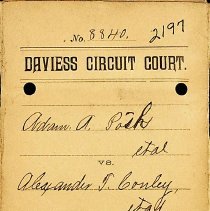 No. 8840. 2197
DAVIESS CIRCUIT COURT.
Adam A. Posh
et al
vs.
Alexander T. Conley,
et al